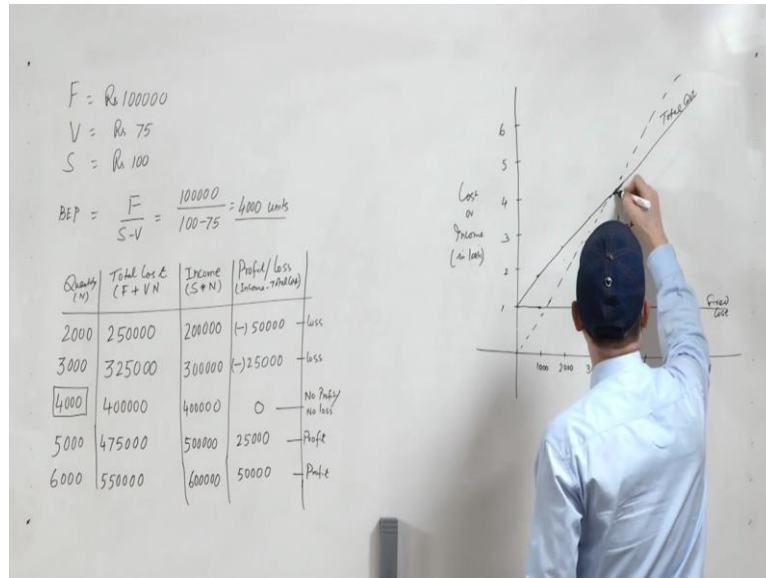 F = Rs 100000
V = Rs 75
S = Rs 100
BEP = F / S-V = 100000 / 100-75 = 4000 units
Quantity (N) | Total Cost (F + VN | Income (S*N) | Profit/Loss (Income-Total Cost)
2000 | 250000 | 200000 | (-) 50000 - Loss
3000 | 325000 | 300000 | (-) 25000 - Loss
4000 | 400000 | 400000 | 0 — No Profit/ No loss
5000 | 475000 | 500000 | 25000 - Profit
6000 | 550000 | 600000 | 50000 - Profit
Total Cost
6
5
4
3
2
1
Cost
or
Income
Fixed
Cost
1000 2000 3